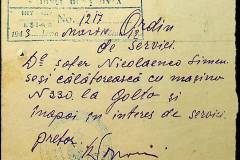 No. 1217
1943 Martie
Ordin
de serviciu.
Dl șofer Nicolaenco Simeon
se și călătorească cu mașina
N 330 la Golta și
înapoi în interes de serviciu.
prefect